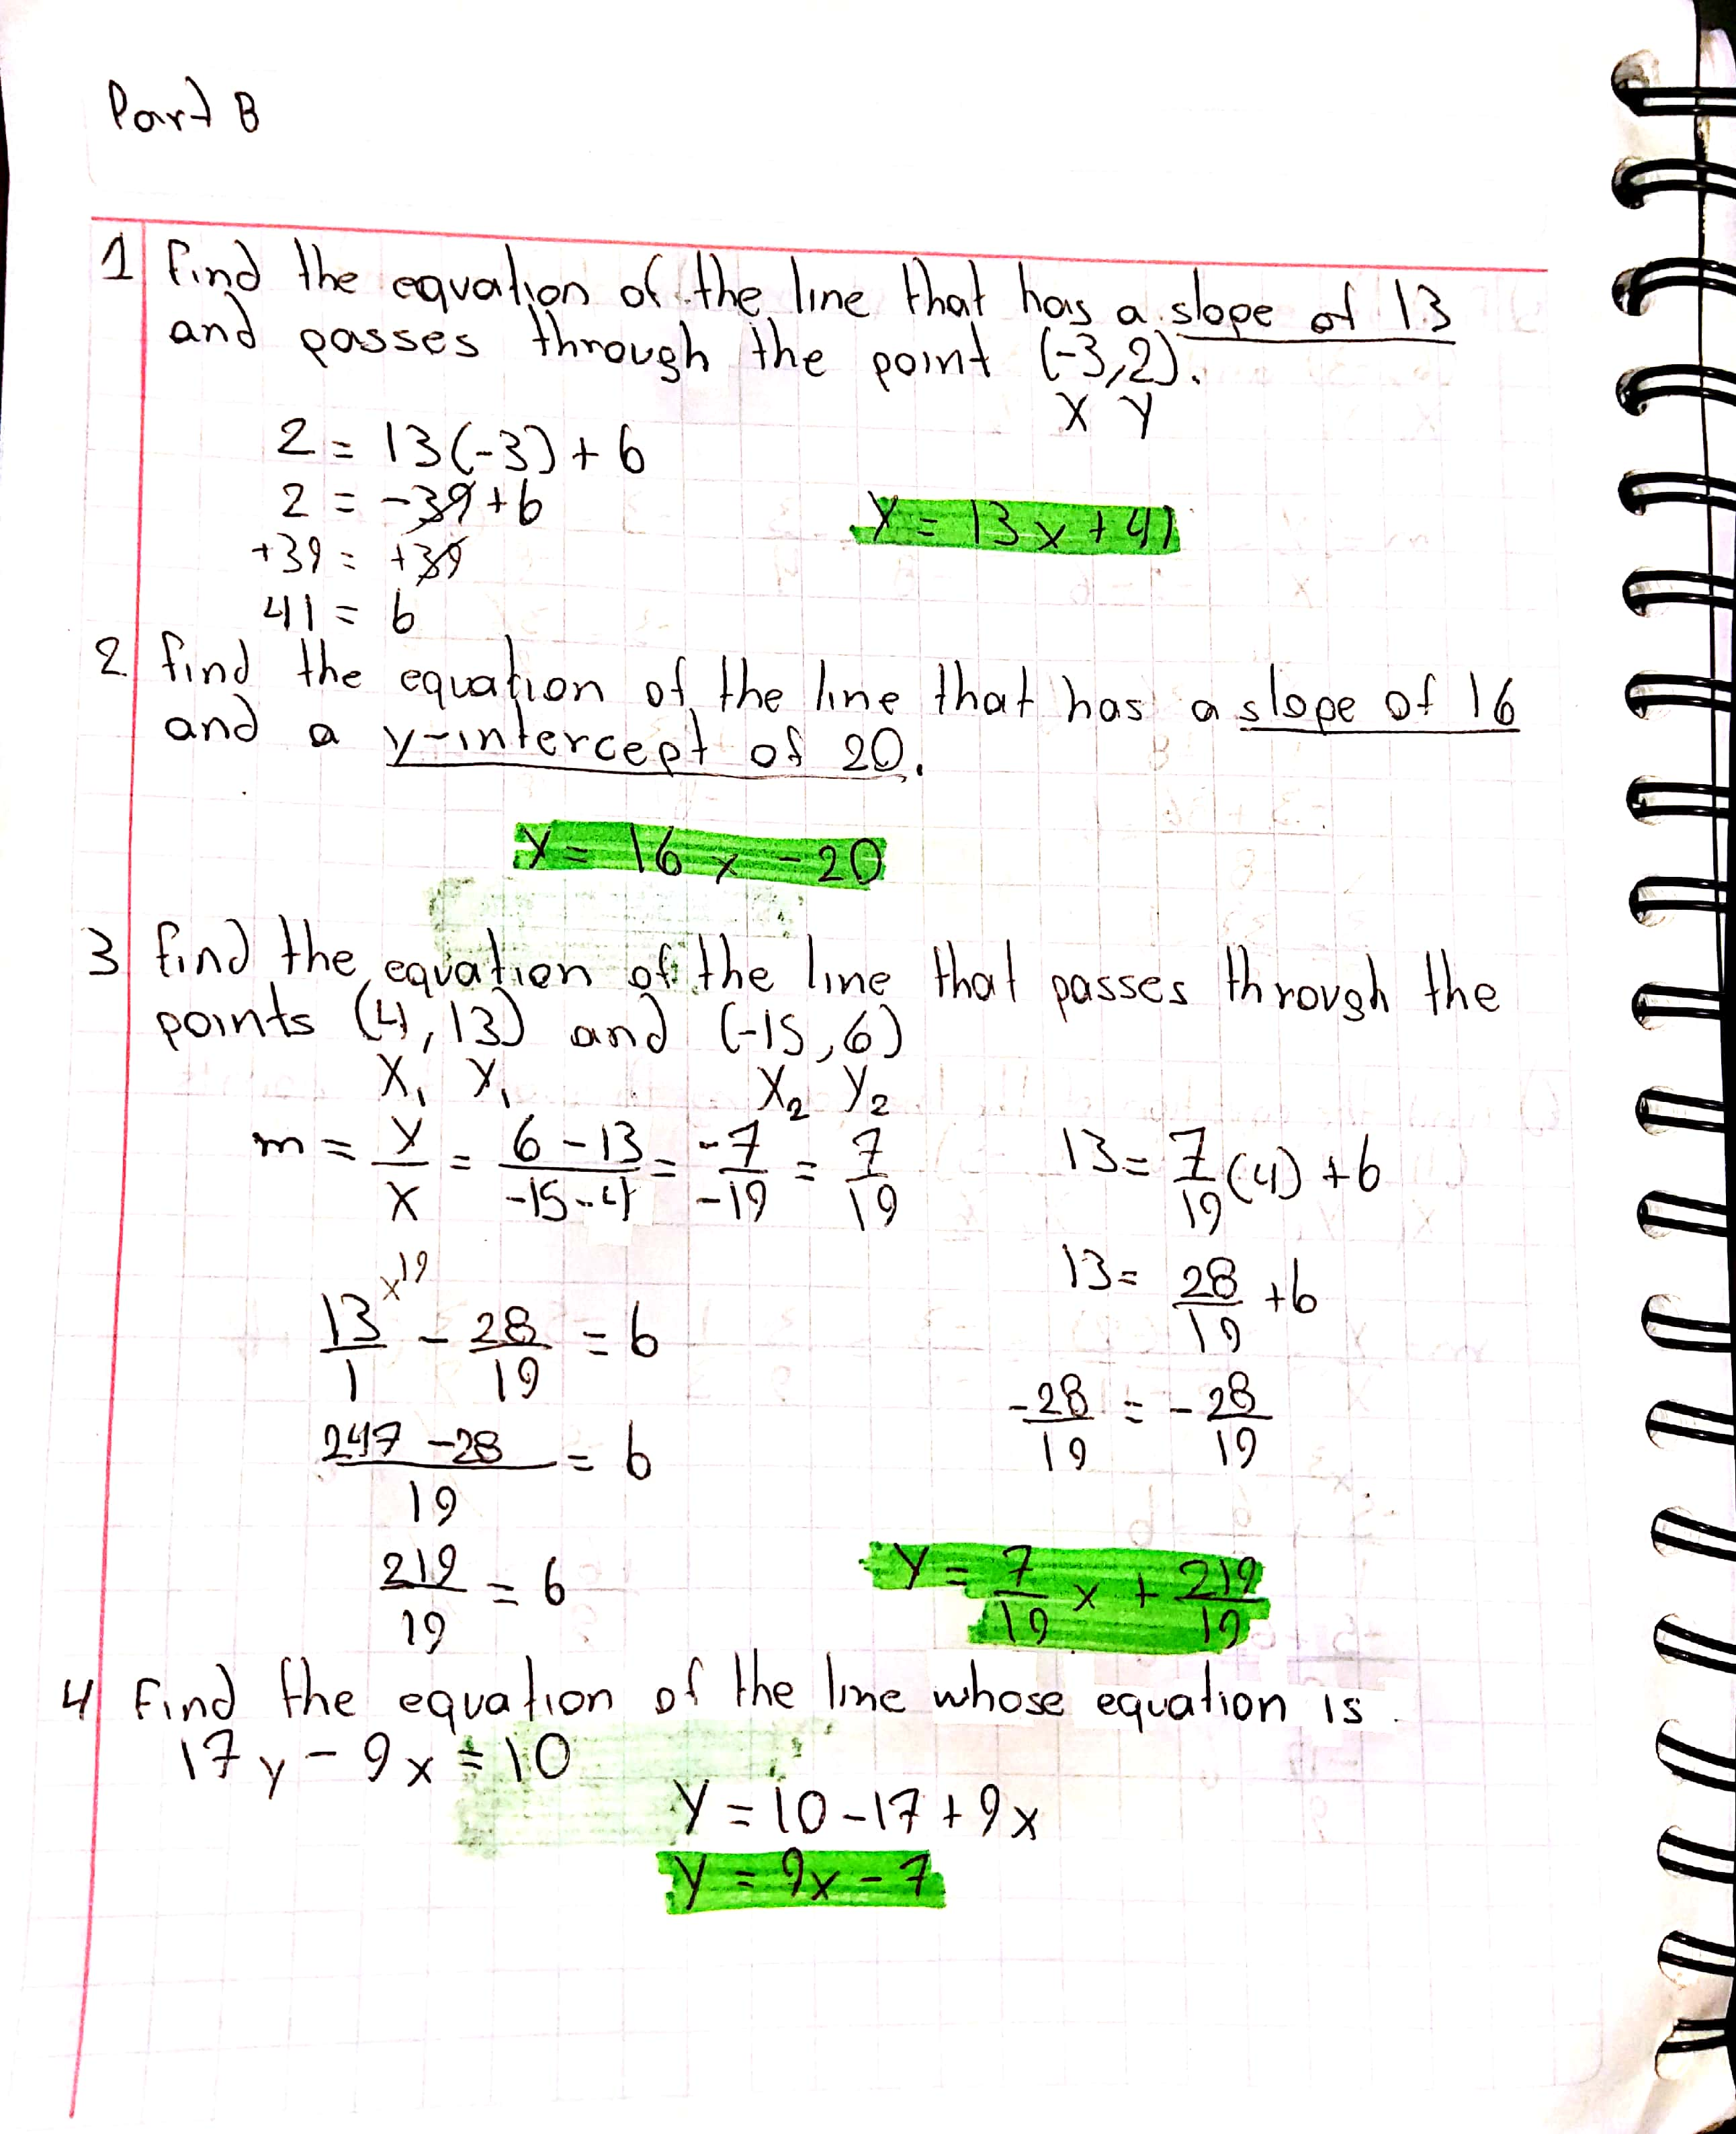 Part B
1 Find the equation of the line that has a slope of 13
and passes through the point (-3,2).
X Y
2 = 13(-3) + b
2 = -39 + b
+39 = +39
41 = b
Y = 13x + 41
2 find the equation of the line that has a slope of 16
and a y-intercept of 20.
Y = 16x - 20
3 find the equation of the line that passes through the
points (4,13) and (-15,6)
X₁ Y₁ X₂ Y₂
m = Y/X = 6-13/-15-4 = -7/-19 = 7/19
13 = 7/19 (4) + b
13 = 28/19 + b
-28/19 = -28/19
13/1 x19 - 28/19 = b
247-28/19 = b
219/19 = b
Y = 7/19 x + 219/19
4 Find the equation of the line whose equation is.
17y - 9x = 10
Y = 10 - 17 + 9x
Y = 9x - 7